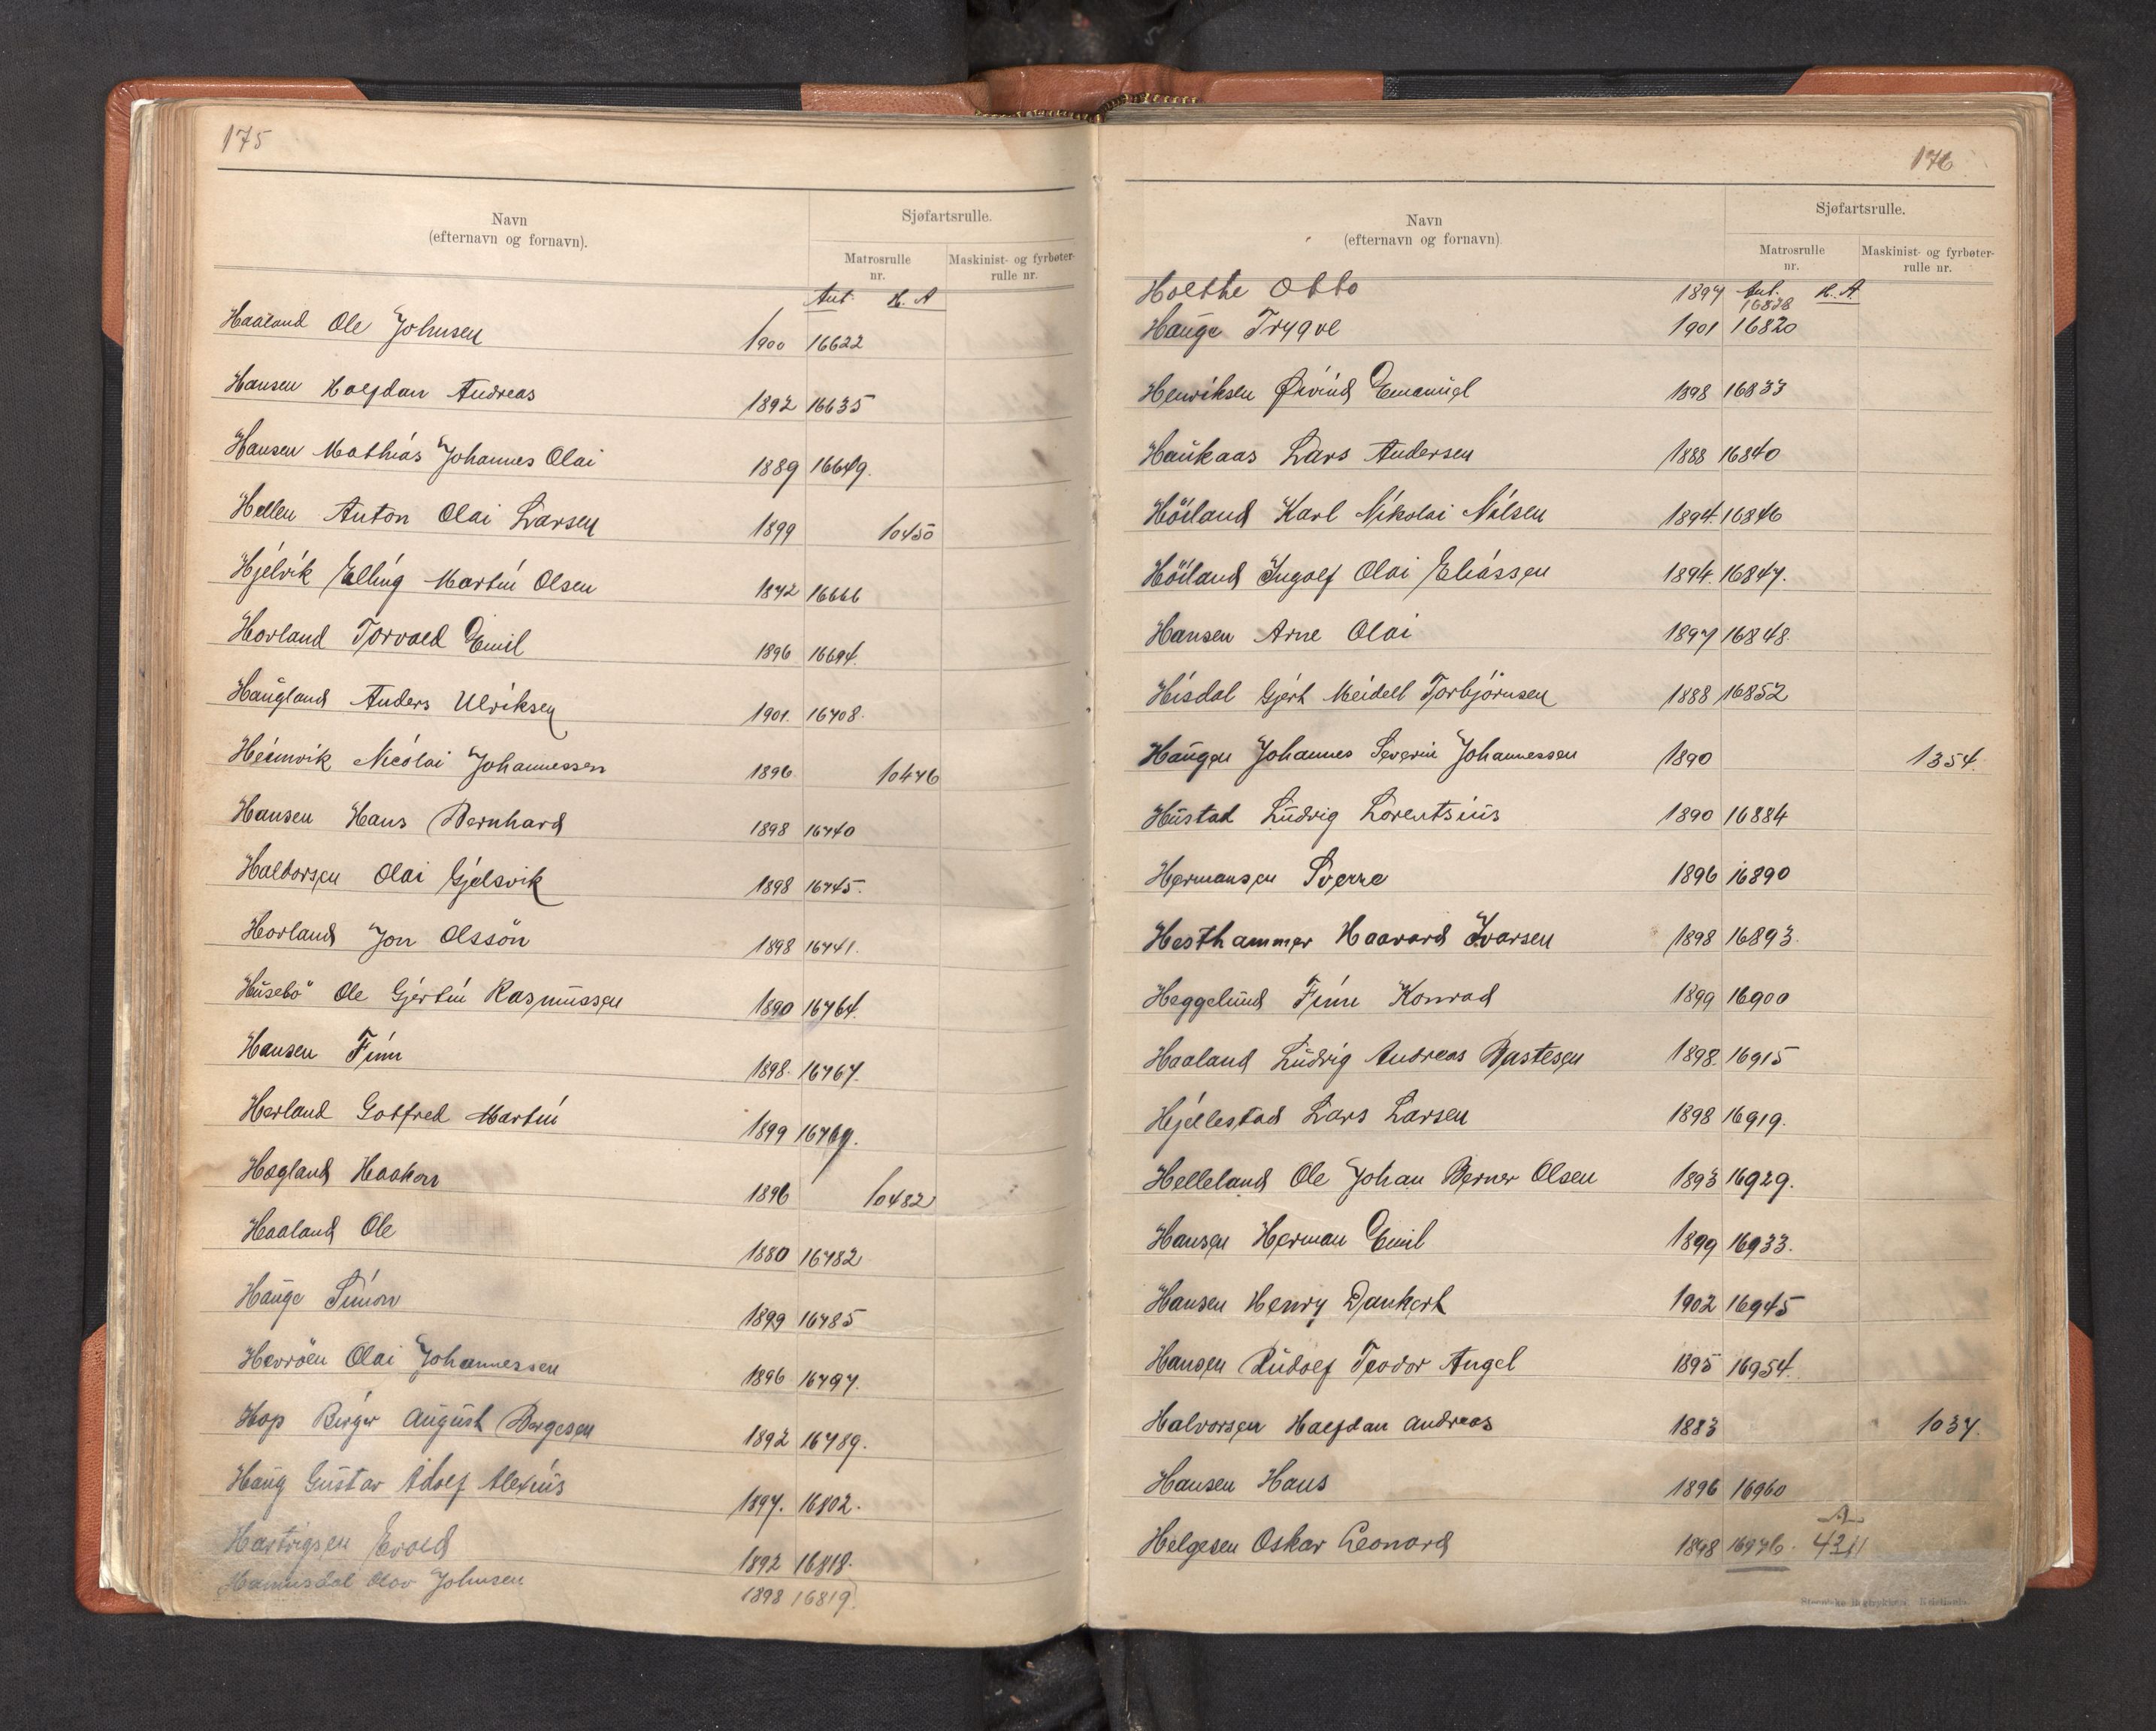 175
Navn
(efternavn og fornavn).
Sjøfartsrulle.
Matrosrulle
nr.
Maskinist- og fyrbøter-
rulle nr.
Ant. H. A
Haaland Ole Johnsen 1900 16622
Hansen Halfdan Andreas 1892 16635
Hansen Mathias Johannes Olai 1889 16649.
Hellen Anton Olai Larsen 1899 10450
Hjelvik Elling Martin Olsen 1872 16666
Hovland Torvald Emil 1896 16694.
Haugland Anders Ulriksen 1901. 16708.
Heimvik Nicolai Johannessen 1896 10476
Hansen Hans Bernhard 1898 16740
Haldorsen Olai Gjelsvik 1898 16745.
Hovland Jon Olsson 1898 16741.
Husebö Ole Gjertin Rasmussen 1890 16764.
Hansen Finn 1898. 16767.
Herland Gotfred Martin 1899 16769.
Hagland Haakon 1896 10482
Haaland Ole 1880 16782
Hauge Simon 1899 16785
Hevröen Olai Johannessen 1896 16797.
Hop Birger August Børgesen 1892 16789.
Haug Gustav Adolf Alexius 1897. 16802.
Hartvigsen Evald 1892 16818.
Olav Johnsen 1898 16819.
176
Navn
(efternavn og fornavn)
Sjøfartsrulle.
Matrosrulle
nr.
Maskinist- og fyrbøter-
rulle nr.
Ant. H. A
Holthe Otto 1897 16828
Hauge Trygve 1901 16820
Henriksen Øivind Emanuel 1898 16833
Haukaas Lars Andersen 1888 16840
Höiland Karl Nikolai Nilsen 1894. 16846
Höiland Ingolf Olai Eliassen 1894. 16847.
Hansen Arne Olai 1897 16848.
Hisdal Gjert Meidell Torbjörnsen 1888 16852
Haugen Johannes Severin Johannessen 1890 1354.
Hustad Ludvig Lorentsius 1890 16884
Hermansen Sverre 1896 16890
Hesthammer Haavard Ivarsen 1898 16893.
Heggelund Finn Konrad 1899 16900
Haaland Ludvig Andreas Bastesen 1898. 16915
Hjellestad Lars Larsen 1898 16919.
Helleland Ole Johan Berner Olsen 1893 16929.
Hansen Herman Emil 1899 16933.
Hansen Henry Dankert 1902 16945
Hansen Rudolf Teodor Angel 1895 16954.
Halvorsen Halfdan Andreas 1883 1037.
Hansen Hans 1896 16960
A
Helgesen Oskar Leonard 1898 16976. 4311